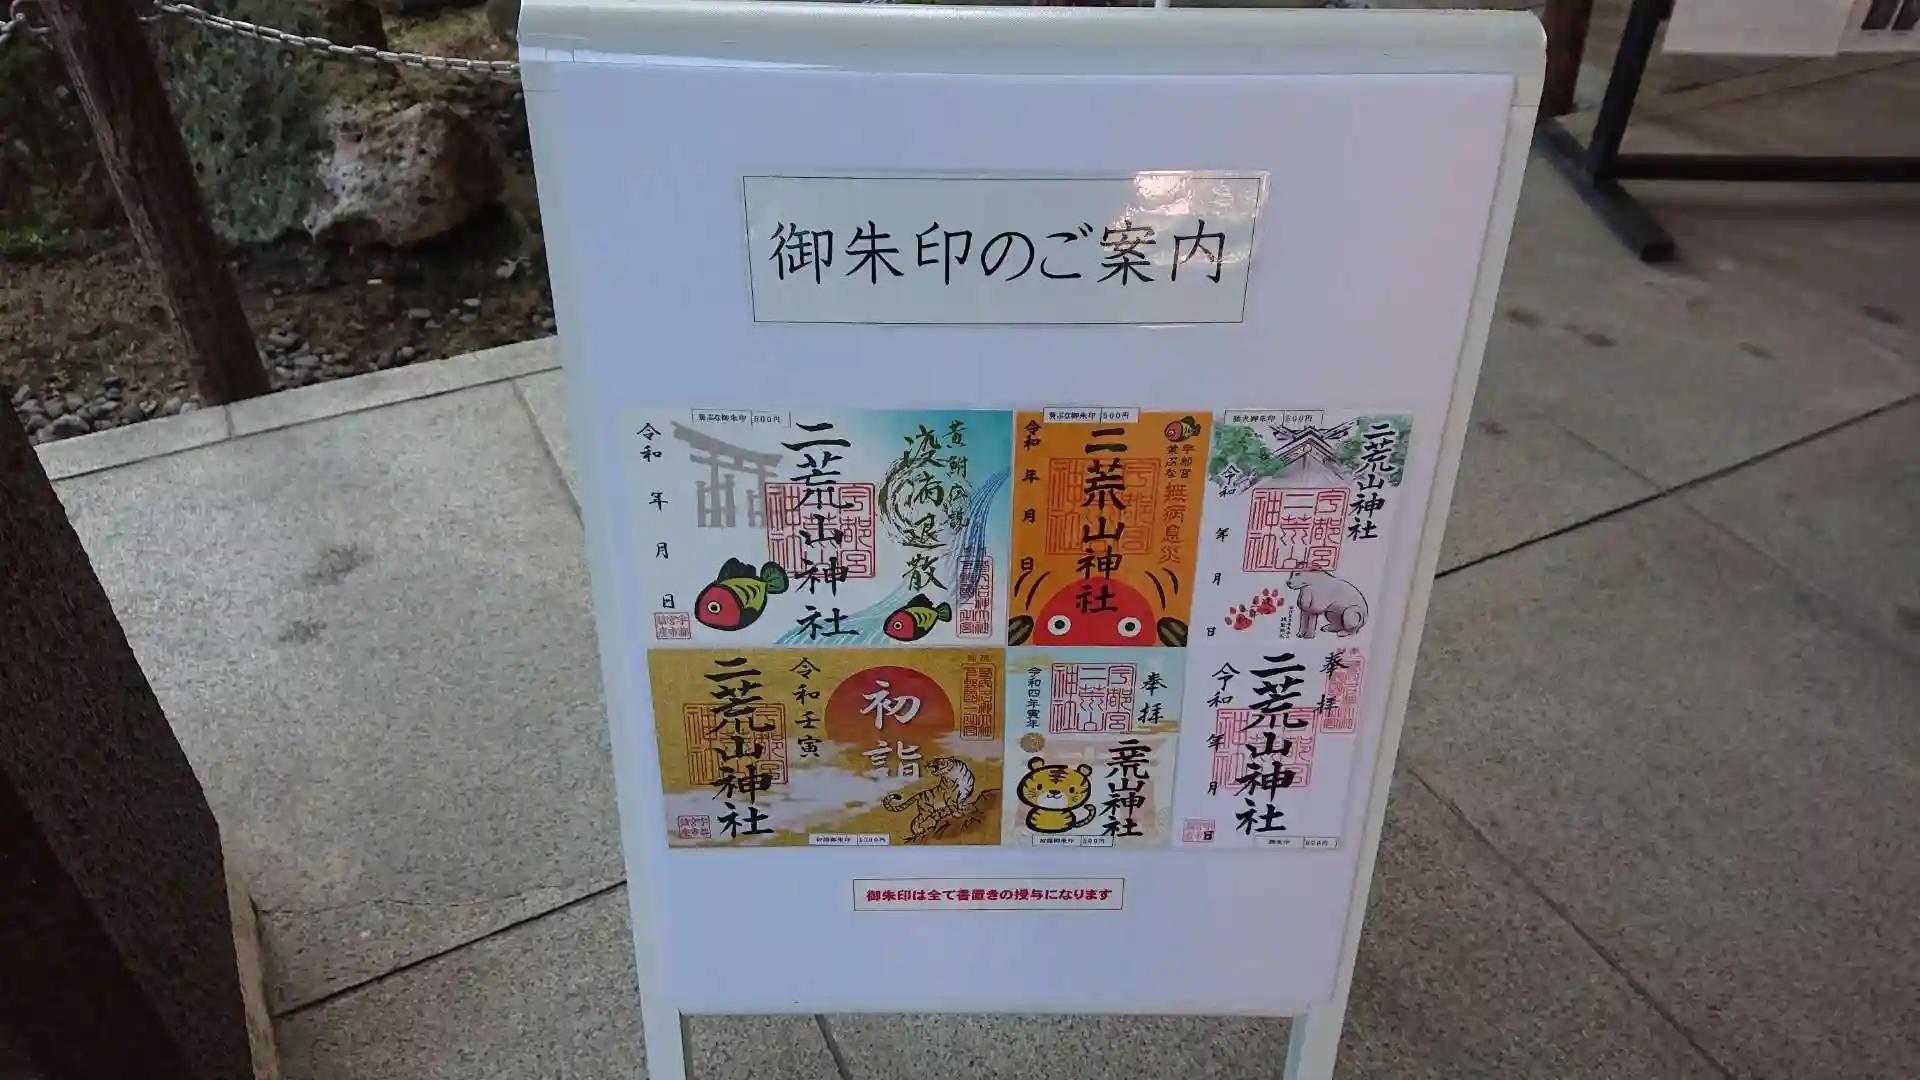 御朱印のご案内
黄ぶな御朱印 500円
令和 年 月 日
二荒山神社
宇都宮二荒山神社
疫病退散
黄鮒伝説
黄ぶな御朱印 500円
令和 年 月 日
二荒山神社
宇都宮
黄ぶな
無病息災
狛犬御朱印 500円
二荒山神社
令和 年 月 日
宇都宮二荒山神社
二荒山神社
令和壬寅
初詣
初詣御朱印 1000円
令和四年寅年
宇都宮二荒山神社
奉拝
二荒山神社
初詣御朱印 500円
奉拝
二荒山神社
令和 年 月 日
御朱印
御朱印は全て書置きの授与になります